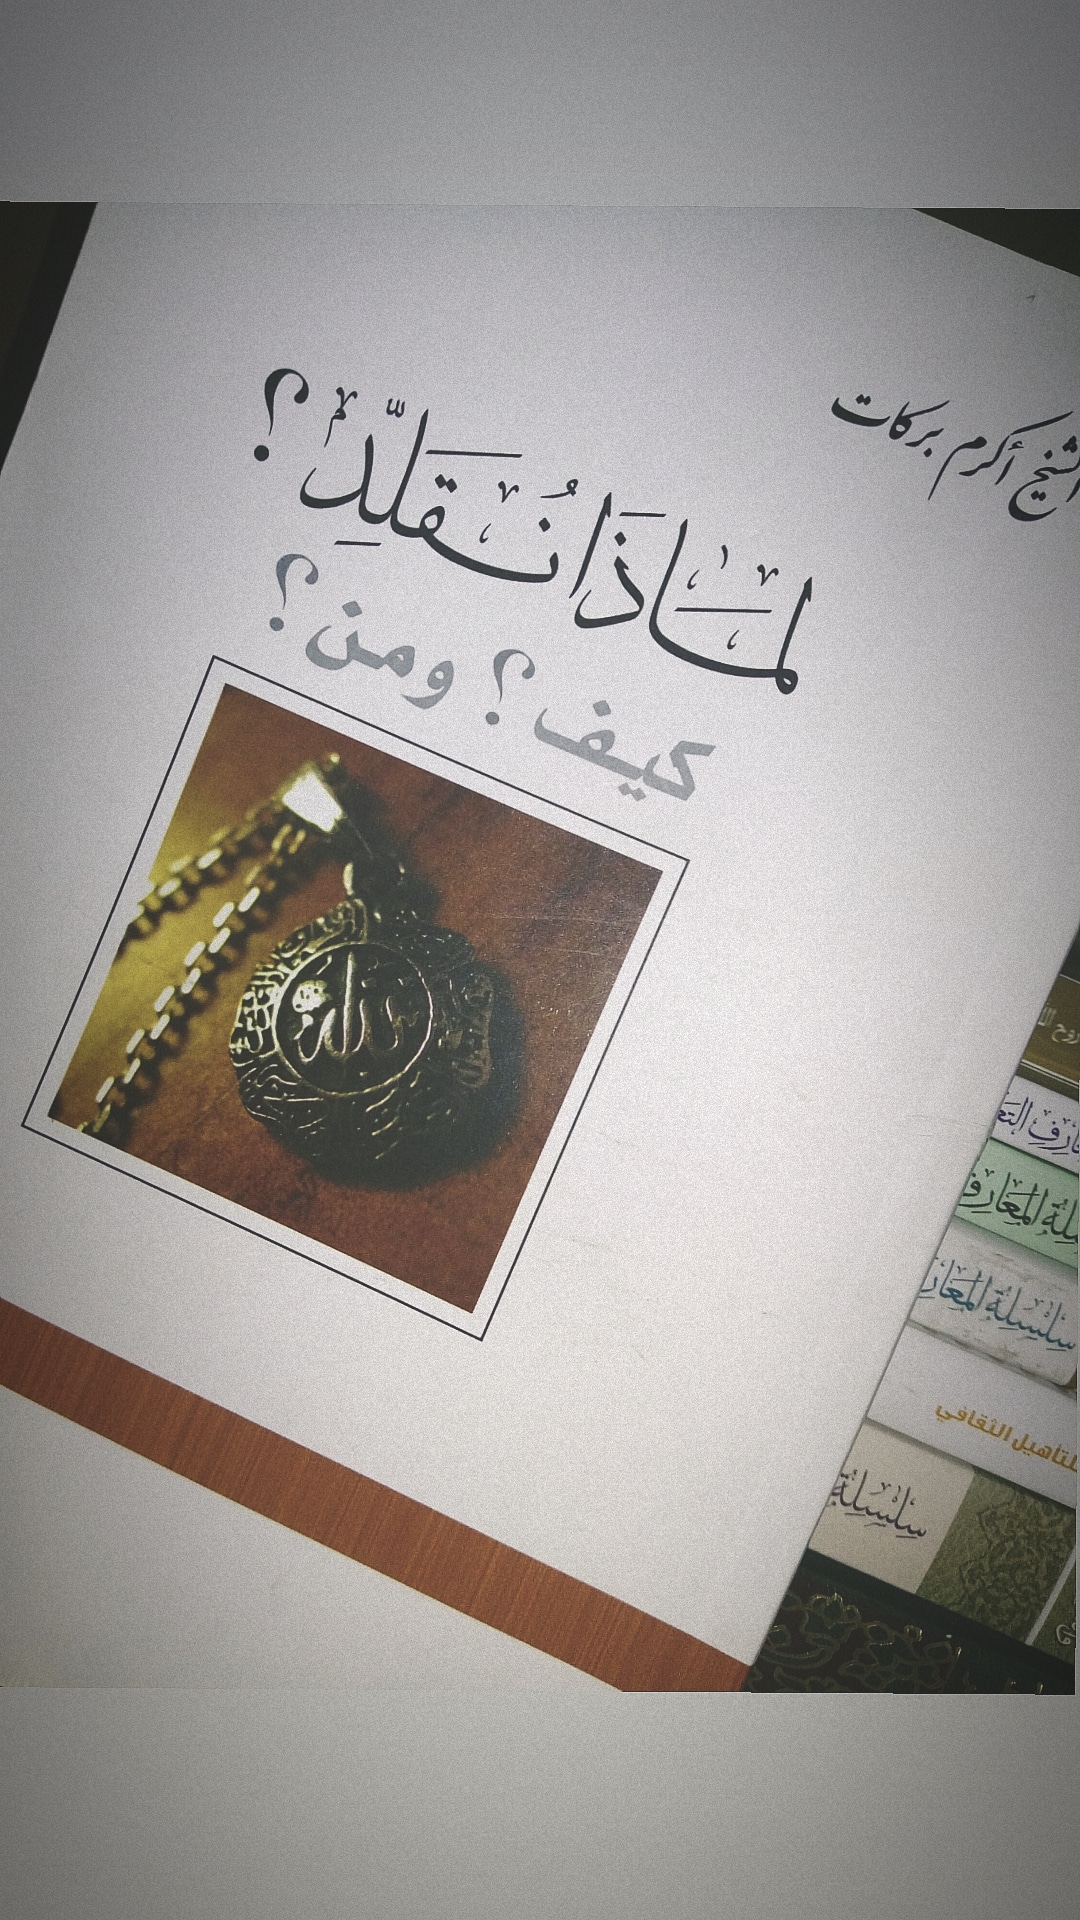 الشيخ أكرم بركات
لماذا نُقلِّدُ؟
كيف؟ ومن؟
الله
روح
سلسلة المعارف
سلسلة
للتأهيل الثقافي
سلسلة